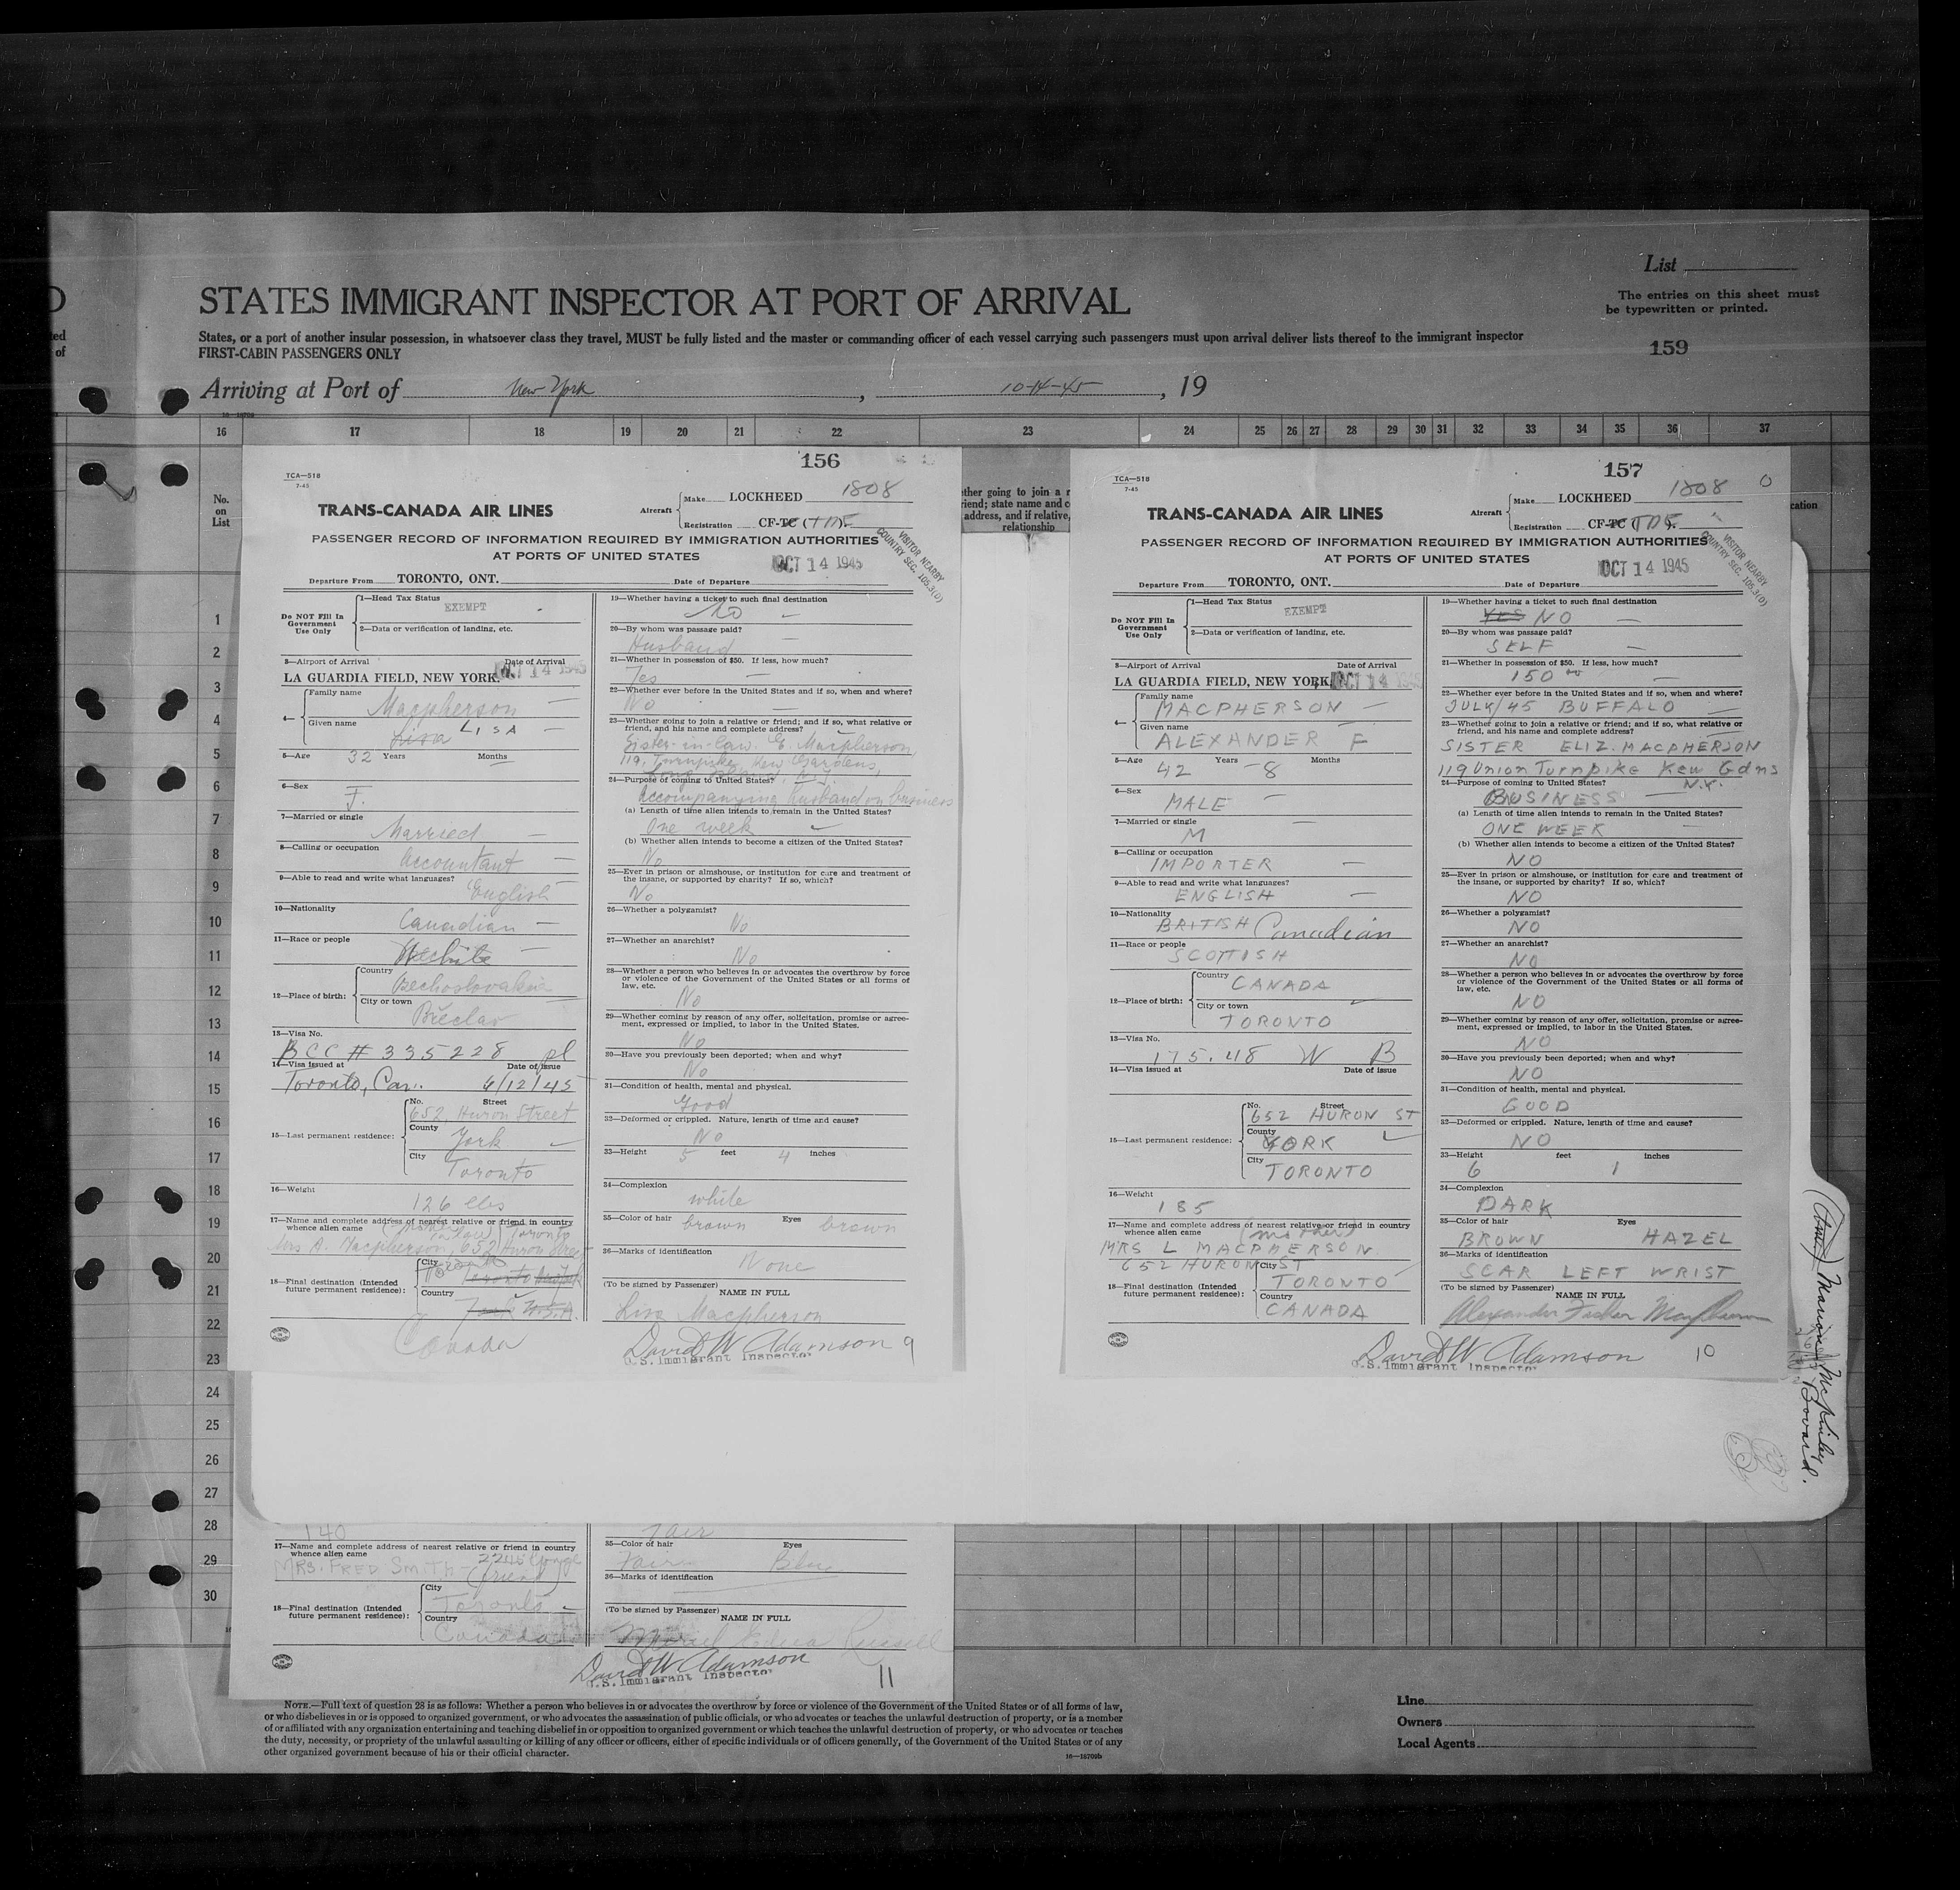 List
The entries on this sheet must
be typewritten or printed.
159
STATES IMMIGRANT INSPECTOR AT PORT OF ARRIVAL
States, or a port of another insular possession, in whatsoever class they travel, MUST be fully listed and the master or commanding officer of each vessel carrying such passengers must upon arrival deliver lists thereof to the immigrant inspector
FIRST-CABIN PASSENGERS ONLY
Arriving at Port of New York, 10-14-45, 19
16 17 18 19 20 21 22 23 24 25 26 27 28 29 30 31 32 33 34 35 36 37
No.
on
List
1
2
3
4
5
6
7
8
9
10
11
12
13
14
15
16
17
18
19
20
21
22
23
24
25
26
27
28
29
30
156
TCA—518
7-45
TRANS-CANADA AIR LINES
Aircraft Make LOCKHEED 1808
Registration CF-TC (TDF).
PASSENGER RECORD OF INFORMATION REQUIRED BY IMMIGRATION AUTHORITIES
AT PORTS OF UNITED STATES
VISITOR NEARBY
COUNTRY SEC. 105.3(D)
OCT 14 1945
Departure From TORONTO, ONT. Date of Departure
Do NOT Fill In
Government
Use Only
1—Head Tax Status
EXEMPT
2—Data or verification of landing, etc.
3—Airport of Arrival Date of Arrival
LA GUARDIA FIELD, NEW YORK. OCT 14 1945
4— Family name
Macpherson
Given name
Lisa LISA
5—Age 32 Years Months
6—Sex
F.
7—Married or single
Married
8—Calling or occupation
Accountant
9—Able to read and write what languages?
English
10—Nationality
Canadian
11—Race or people
White
12—Place of birth: Country
Czechoslovakia
City or town
Břeclav
13—Visa No.
BCC # 335228 pl
14—Visa issued at Date of issue
Toronto, Can. 6/12/45
15—Last permanent residence: No. Street
652, Huron Street
County
York
City
Toronto
16—Weight
126 lbs
17—Name and complete address of nearest relative or friend in country
whence alien came (mother in law) Toronto
Mrs A. Macpherson, 652 Huron Street
18—Final destination (Intended
future permanent residence): City
Toronto New York
Country
U.S.A.
Canada
19—Whether having a ticket to such final destination
No
20—By whom was passage paid?
Husband
21—Whether in possession of $50. If less, how much?
Yes
22—Whether ever before in the United States and if so, when and where?
No
23—Whether going to join a relative or friend; and if so, what relative or
friend, and his name and complete address?
Sister-in-law. E. Macpherson,
119, Turnpike, Kew Gardens,
24—Purpose of coming to United States?
Accompanying husband on business
(a) Length of time alien intends to remain in the United States?
One week
(b) Whether alien intends to become a citizen of the United States?
No
25—Ever in prison or almshouse, or institution for care and treatment of
the insane, or supported by charity? If so, which?
No
26—Whether a polygamist?
No
27—Whether an anarchist?
No
28—Whether a person who believes in or advocates the overthrow by force
or violence of the Government of the United States or all forms of
law, etc.
No
29—Whether coming by reason of any offer, solicitation, promise or agree-
ment, expressed or implied, to labor in the United States.
No
30—Have you previously been deported; when and why?
No
31—Condition of health, mental and physical.
Good
32—Deformed or crippled. Nature, length of time and cause?
No
33—Height 5 feet 4 inches
34—Complexion
white
35—Color of hair brown Eyes brown
36—Marks of identification
None
(To be signed by Passenger)
NAME IN FULL
Lisa Macpherson
David W Adamson 9
U.S. Immigrant Inspector
ther going to join a r
riend; state name and c
address, and if relative,
relationship
157
TCA—518
7-45
TRANS-CANADA AIR LINES
Aircraft Make LOCKHEED 1808
Registration CF-TC (TDF).
PASSENGER RECORD OF INFORMATION REQUIRED BY IMMIGRATION AUTHORITIES
AT PORTS OF UNITED STATES
VISITOR NEARBY
COUNTRY SEC. 105.3(D)
OCT 14 1945
Departure From TORONTO, ONT. Date of Departure
Do NOT Fill In
Government
Use Only
1—Head Tax Status
EXEMPT
2—Data or verification of landing, etc.
3—Airport of Arrival Date of Arrival
LA GUARDIA FIELD, NEW YORK. OCT 14 1945
4— Family name
MACPHERSON
Given name
ALEXANDER F
5—Age Years Months
42 8
6—Sex
MALE
7—Married or single
M
8—Calling or occupation
IMPORTER
9—Able to read and write what languages?
ENGLISH
10—Nationality
BRITISH Canadian
11—Race or people
SCOTTISH
12—Place of birth: Country
CANADA
City or town
TORONTO
13—Visa No.
175.48 W B
14—Visa issued at Date of issue
15—Last permanent residence: No. Street
652 HURON ST
County
YORK
City
TORONTO
16—Weight
185
17—Name and complete address of nearest relative or friend in country
whence alien came (mother)
MRS L MACPHERSON
652 HURON ST
18—Final destination (Intended
future permanent residence): City
TORONTO
Country
CANADA
19—Whether having a ticket to such final destination
YES NO
20—By whom was passage paid?
SELF
21—Whether in possession of $50. If less, how much?
150
22—Whether ever before in the United States and if so, when and where?
JULY/45 BUFFALO
23—Whether going to join a relative or friend; and if so, what relative or
friend, and his name and complete address?
SISTER ELIZ. MACPHERSON
119 Union Turnpike Kew Gdns
N.Y.
24—Purpose of coming to United States?
BUSINESS
(a) Length of time alien intends to remain in the United States?
ONE WEEK
(b) Whether alien intends to become a citizen of the United States?
NO
25—Ever in prison or almshouse, or institution for care and treatment of
the insane, or supported by charity? If so, which?
NO
26—Whether a polygamist?
NO
27—Whether an anarchist?
NO
28—Whether a person who believes in or advocates the overthrow by force
or violence of the Government of the United States or all forms of
law, etc.
NO
29—Whether coming by reason of any offer, solicitation, promise or agree-
ment, expressed or implied, to labor in the United States.
NO
30—Have you previously been deported; when and why?
NO
31—Condition of health, mental and physical.
GOOD
32—Deformed or crippled. Nature, length of time and cause?
NO
33—Height feet inches
6 1
34—Complexion
DARK
35—Color of hair Eyes
BROWN HAZEL
36—Marks of identification
SCAR LEFT WRIST
(To be signed by Passenger)
NAME IN FULL
Alexander Macpherson
David W Adamson 10
U.S. Immigrant Inspector
140
17—Name and complete address of nearest relative or friend in country
whence alien came
MRS. FRED SMITH (friend)
18—Final destination (Intended
future permanent residence): City
Toronto
Country
Canada
Fair
35—Color of hair Eyes
Fair Blue
36—Marks of identification
(To be signed by Passenger)
NAME IN FULL
Edna Russell
David W Adamson
U.S. Immigrant Inspector
11
NOTE.—Full text of question 28 is as follows: Whether a person who believes in or advocates the overthrow by force or violence of the Government of the United States or of all forms of law,
or who disbelieves in or is opposed to organized government, or who advocates the assassination of public officials, or who advocates or teaches the unlawful destruction of property, or is a member
of or affiliated with any organization entertaining and teaching disbelief in or opposition to organized government or which teaches the unlawful destruction of property, or who advocates or teaches
the duty, necessity, or propriety of the unlawful assaulting or killing of any officer or officers, either of specific individuals or of officers generally, of the Government of the United States or of any
other organized government because of his or their official character.
16—18709b
Line
Owners
Local Agents